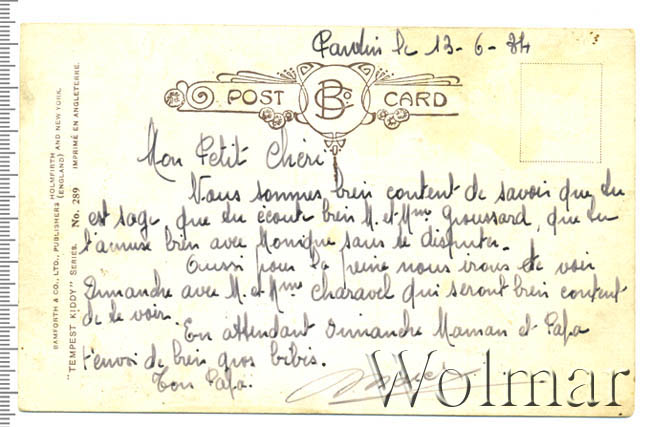 le 13-6-34
POST CARD
B Co
Mon Petit Chéri
Nous sommes bien content de savoir que tu
est sage que tu écoute bien M. et Mme Groussard, que tu
t'amuse bien avec Monique sans te disputer.
Aussi pour la peine nous irons te voir
Dimanche avec M. et Mme Charavel qui seront bien content
de te voir.
En attendant Dimanche Maman et Papa
t'envoi de bien gros bibis.
Ton Papa.
BAMFORTH & CO., LTD., PUBLISHERS HOLMFIRTH (ENGLAND) AND NEW YORK.
"TEMPEST KIDDY" SERIES. No. 289 IMPRIMÉ EN ANGLETERRE.
Wolmar